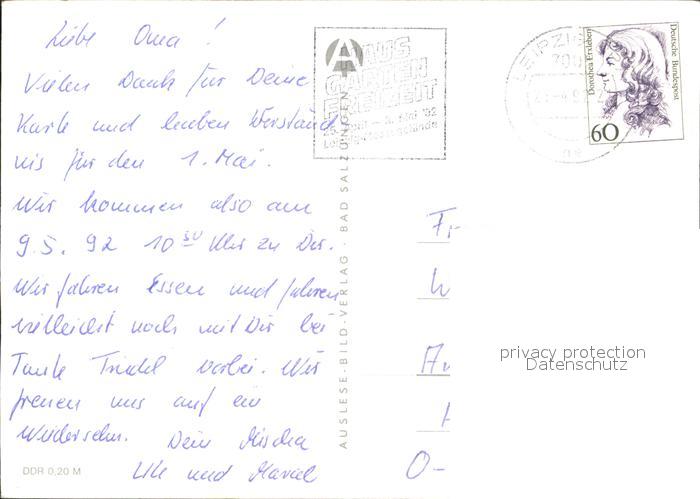 Liebe Oma!
Vielen Dank für Deine
Karte und lieben Verständ
nis für den 1. Mai.
Wir kommen also am
9.5.92 10³⁰ Uhr zu Dir.
Wir fahren Essen und fahren
vielleicht noch mit Dir bei
Tante Trudel vorbei. Wir
freuen uns auf ein
Wiedersehn. Dein Mischa
Ute und Marcel
DDR 0,20 M
AUSLESE-BILD-VERLAG · BAD SALZUNGEN
HAUS
GARTEN
FREIZEIT
LEIPZIG
Deutsche Bundespost
Dorothea Erxleben
60
Fr
W
O-
privacy protection
Datenschutz